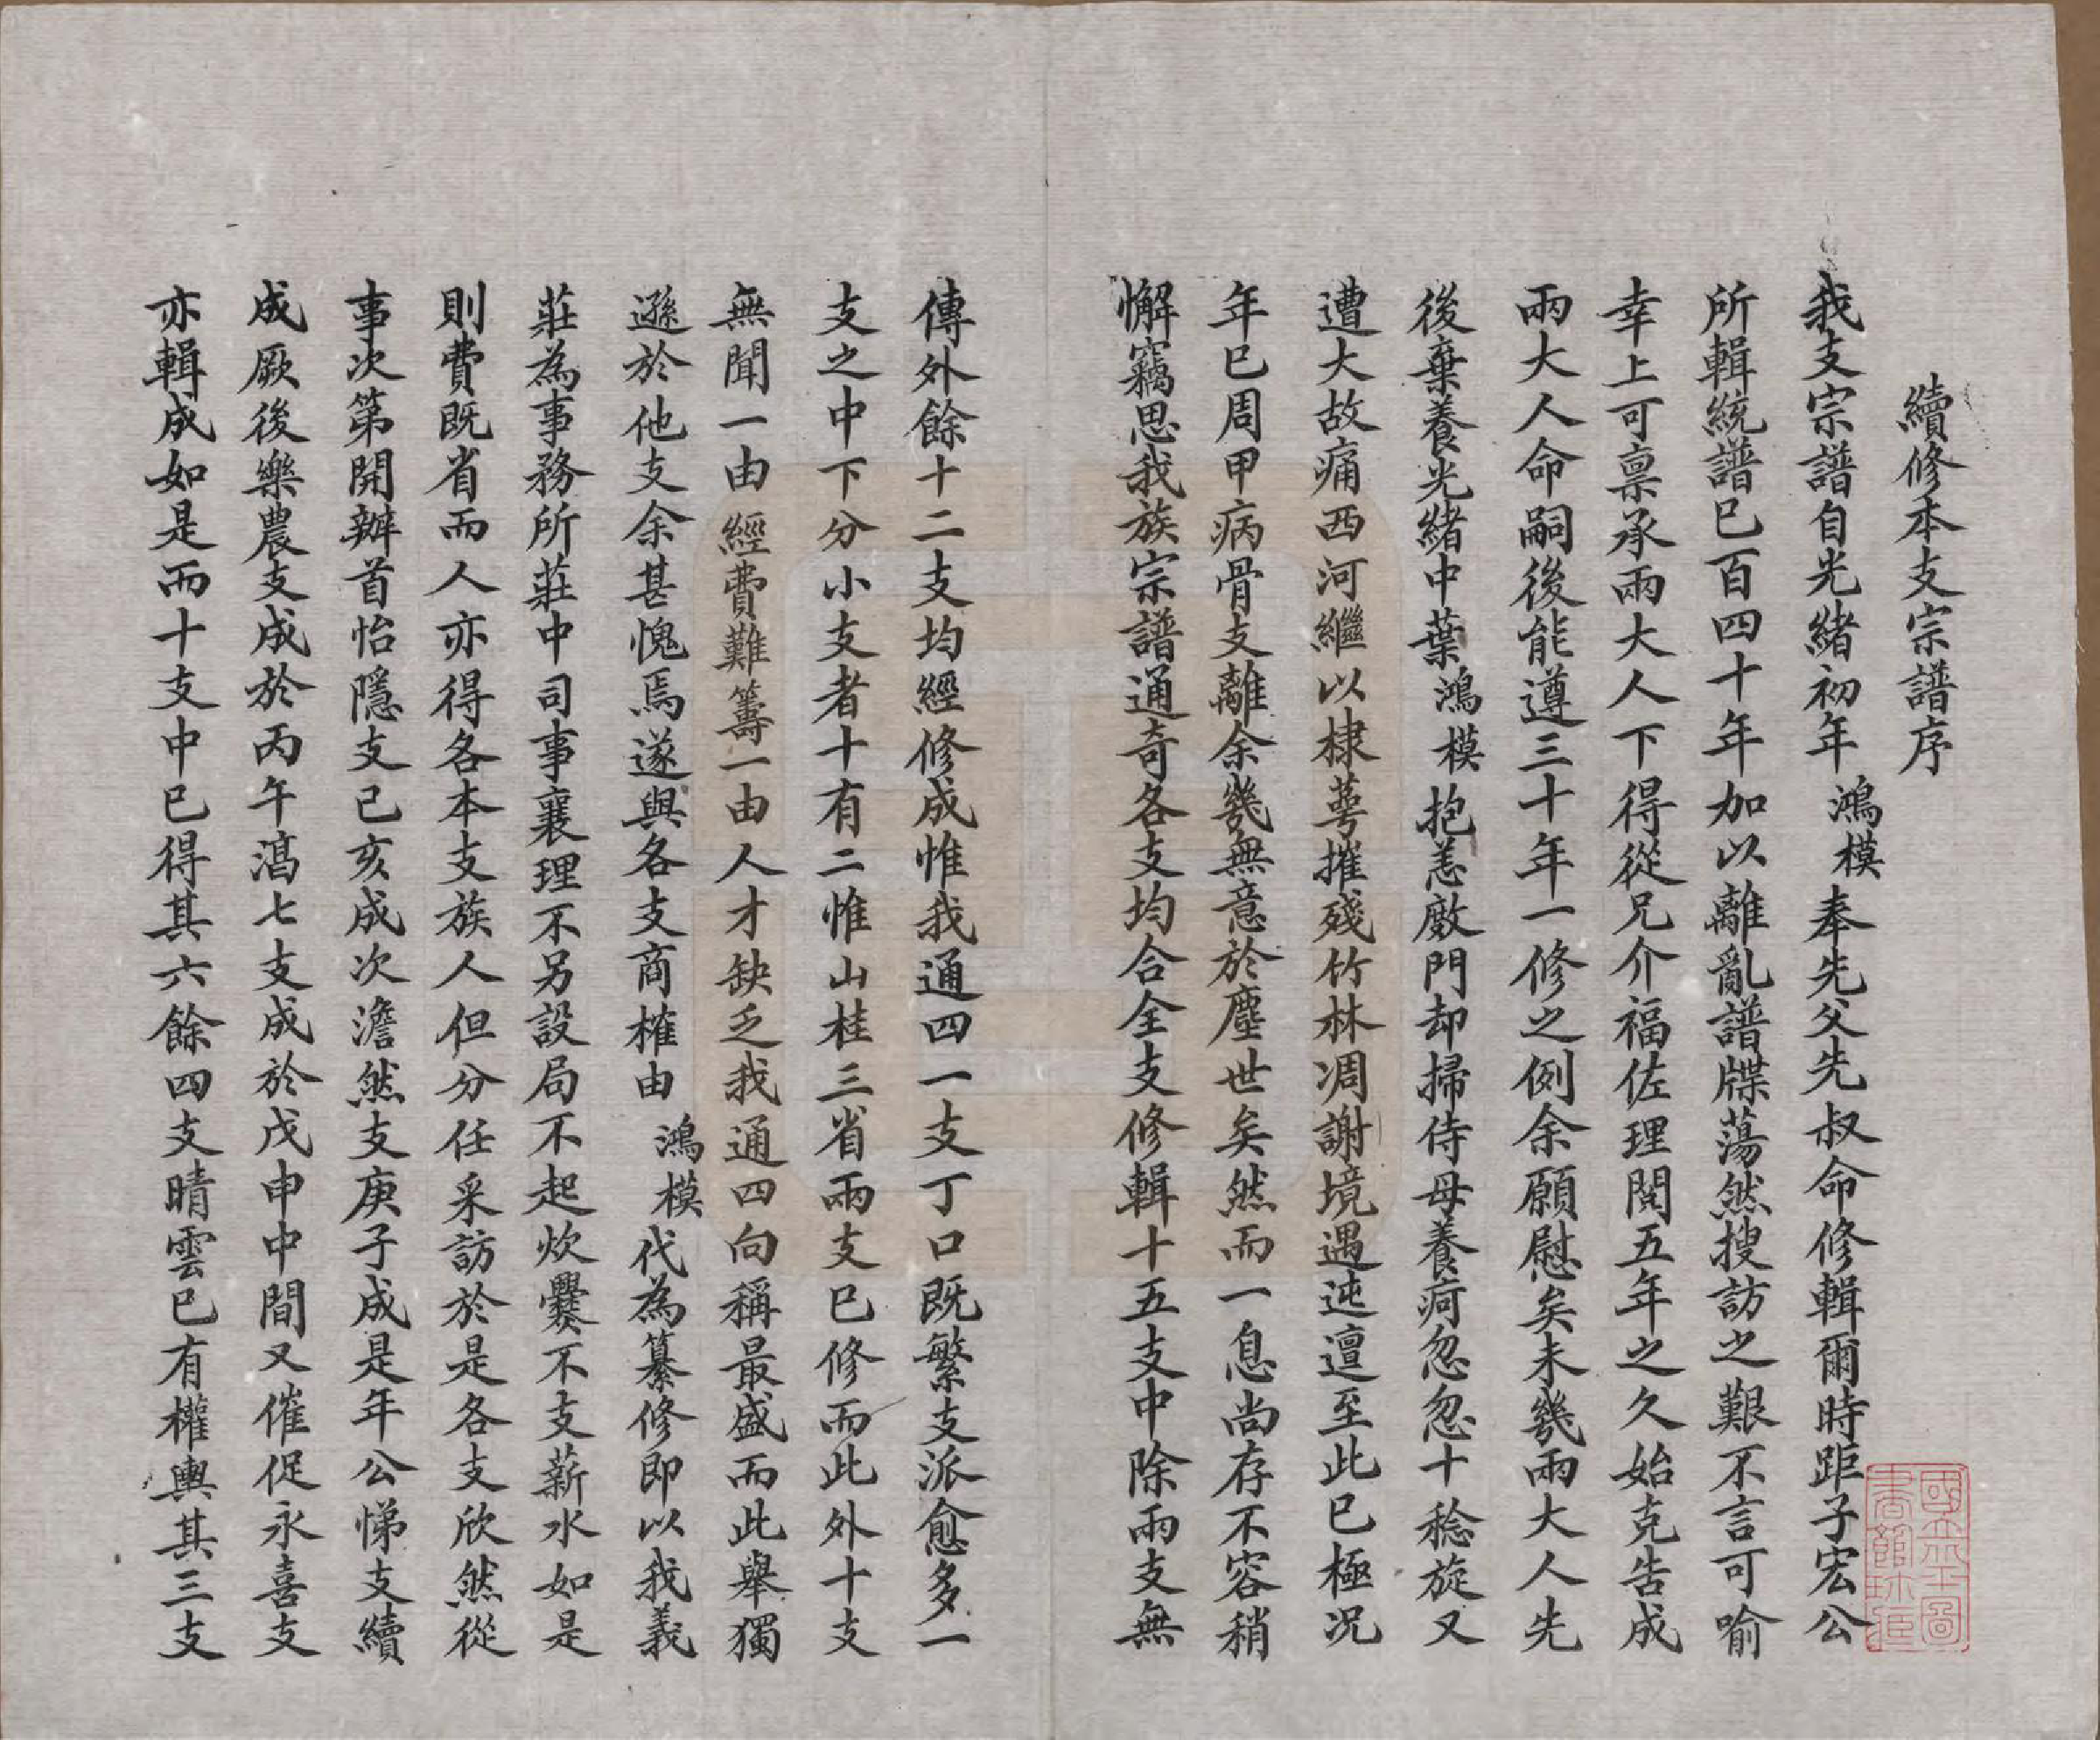 續修本支宗譜序
我支宗譜自光緒初年鴻模奉先父先叔命修輯爾時距子宏公
所輯統譜已百四十年加以離亂譜牒蕩然搜訪之艱不言可喻
幸上可禀承兩大人下得從兄介福佐理閱五年之久始克告成
兩大人命嗣後能遵三十年一修之例余願慰矣未幾兩大人先
後棄養光緒中葉鴻模抱恙廢門却掃侍母養疴忽忽十稔旋又
遭大故痛西河繼以棣萼摧殘竹林凋謝境遇迍邅至此已極况
年已周甲病骨支離余幾無意於塵世矣然而一息尚存不容稍
懈竊思我族宗譜通奇各支均合全支修輯十五支中除兩支無
傳外餘十二支均經修成惟我通四一支丁口既繁支派愈多一
支之中下分小支者十有二惟山桂三省兩支已修而此外十支
無聞一由經費難籌一由人才缺乏我通四向稱最盛而此舉獨
遜於他支余甚愧焉遂與各支商榷由鴻模代為纂修即以我義
莊為事務所莊中司事襄理不另設局不起炊爨不支薪水如是
則費既省而人亦得各本支族人但分任采訪於是各支欣然從
事次第開辦首怡隱支己亥成次澹然支庚子成是年公悌支續
成厥後樂農支成於丙午濄七支成於戊申中間又催促永喜支
亦輯成如是而十支中已得其六餘四支晴雲已有權輿其三支
國立北平圖書館珍藏